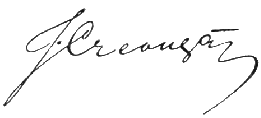 I. Creangă